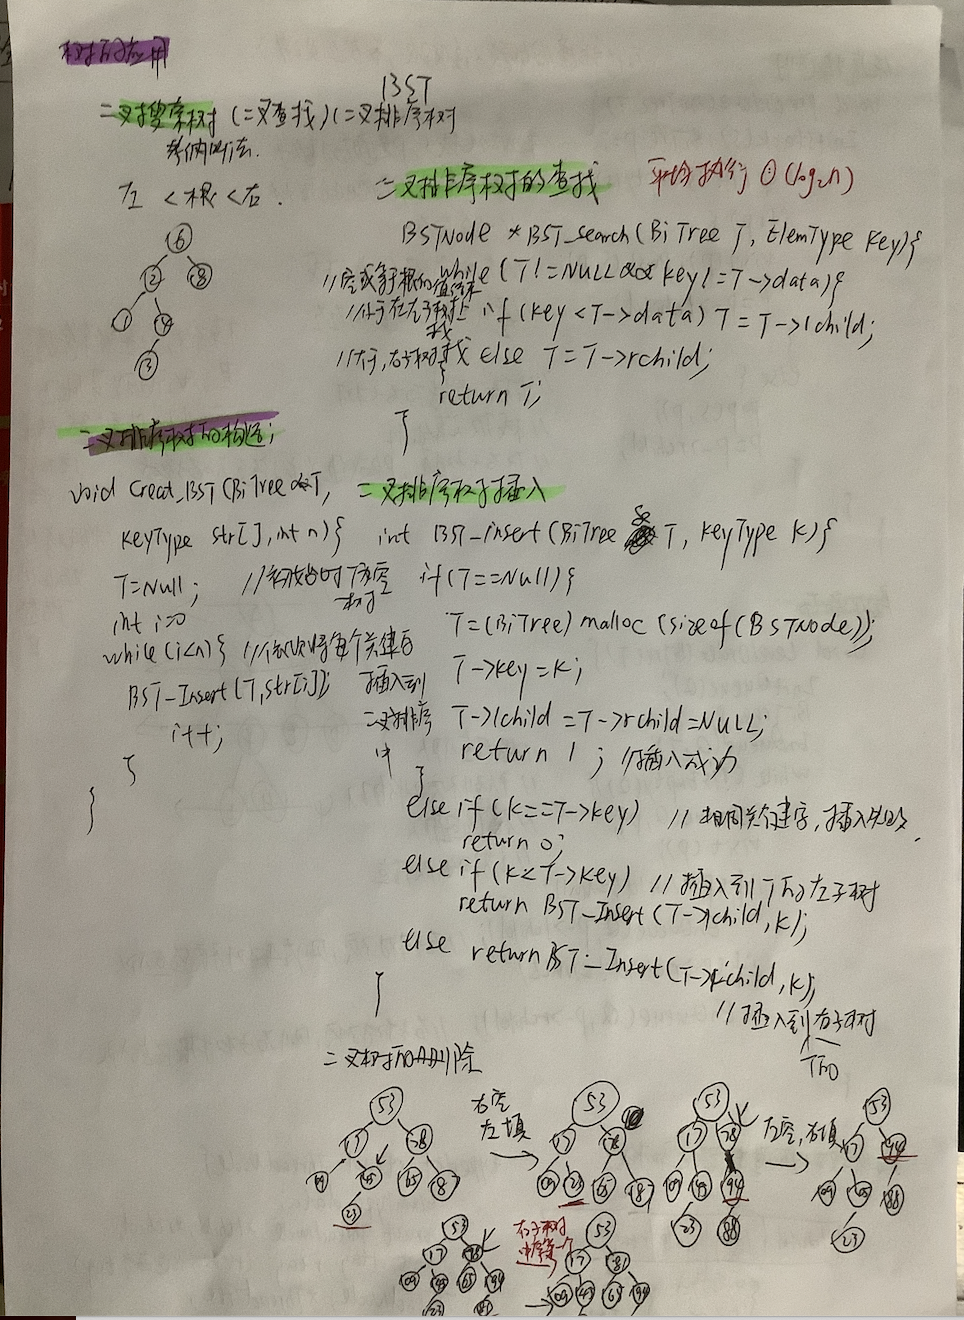 树的应用
BST
二叉搜索树(二叉查找)(二叉排序树
左 < 根 < 右.
6
2 8
1 4
3
二叉排序树的查找 平均执行 O(log2n)
BSTNode *BST_search(BiTree T, ElemType key){
//空或等于根的值结束 while (T!=NULL && key!=T->data){
//小于在左子树上找 if (key<T->data) T=T->lchild;
//大于,右子树找 else T=T->rchild;
}
return T;
}
二叉排序树的构造;
void Creat_BST(BiTree &T,
KeyType str[], int n){
T=Null; //初始时T为空树
int i=0
while(i<n){ //依次将每个关键字插入到二叉排序中
BST_Insert(T,str[i]);
i++;
}
}
二叉排序树插入
int BST_insert(BiTree & T, KeyType K){
if(T==Null){
T=(BiTree) malloc (sizeof(BSTNode));
T->key=K;
T->lchild=T->rchild=NULL;
return 1; //插入成功
}
else if (K==T->key) //相同关键字,插入失败.
return 0;
else if (K<T->key) //插入到T的左子树
return BST_Insert(T->lchild,K);
else return BST_Insert(T->rchild,K);
//插入到右子树
T的
}
二叉树的删除
53
17 78
09 45 65 87
23
右空
左填
53
17 78
09 23 65 87
53
17 78
09 45 94
23 88
左空,右填
53
17 94
09 45 88
23
53
17 78
09 45 65 94
23 81
右子树
中序第一个
53
17 81
09 45 65 94